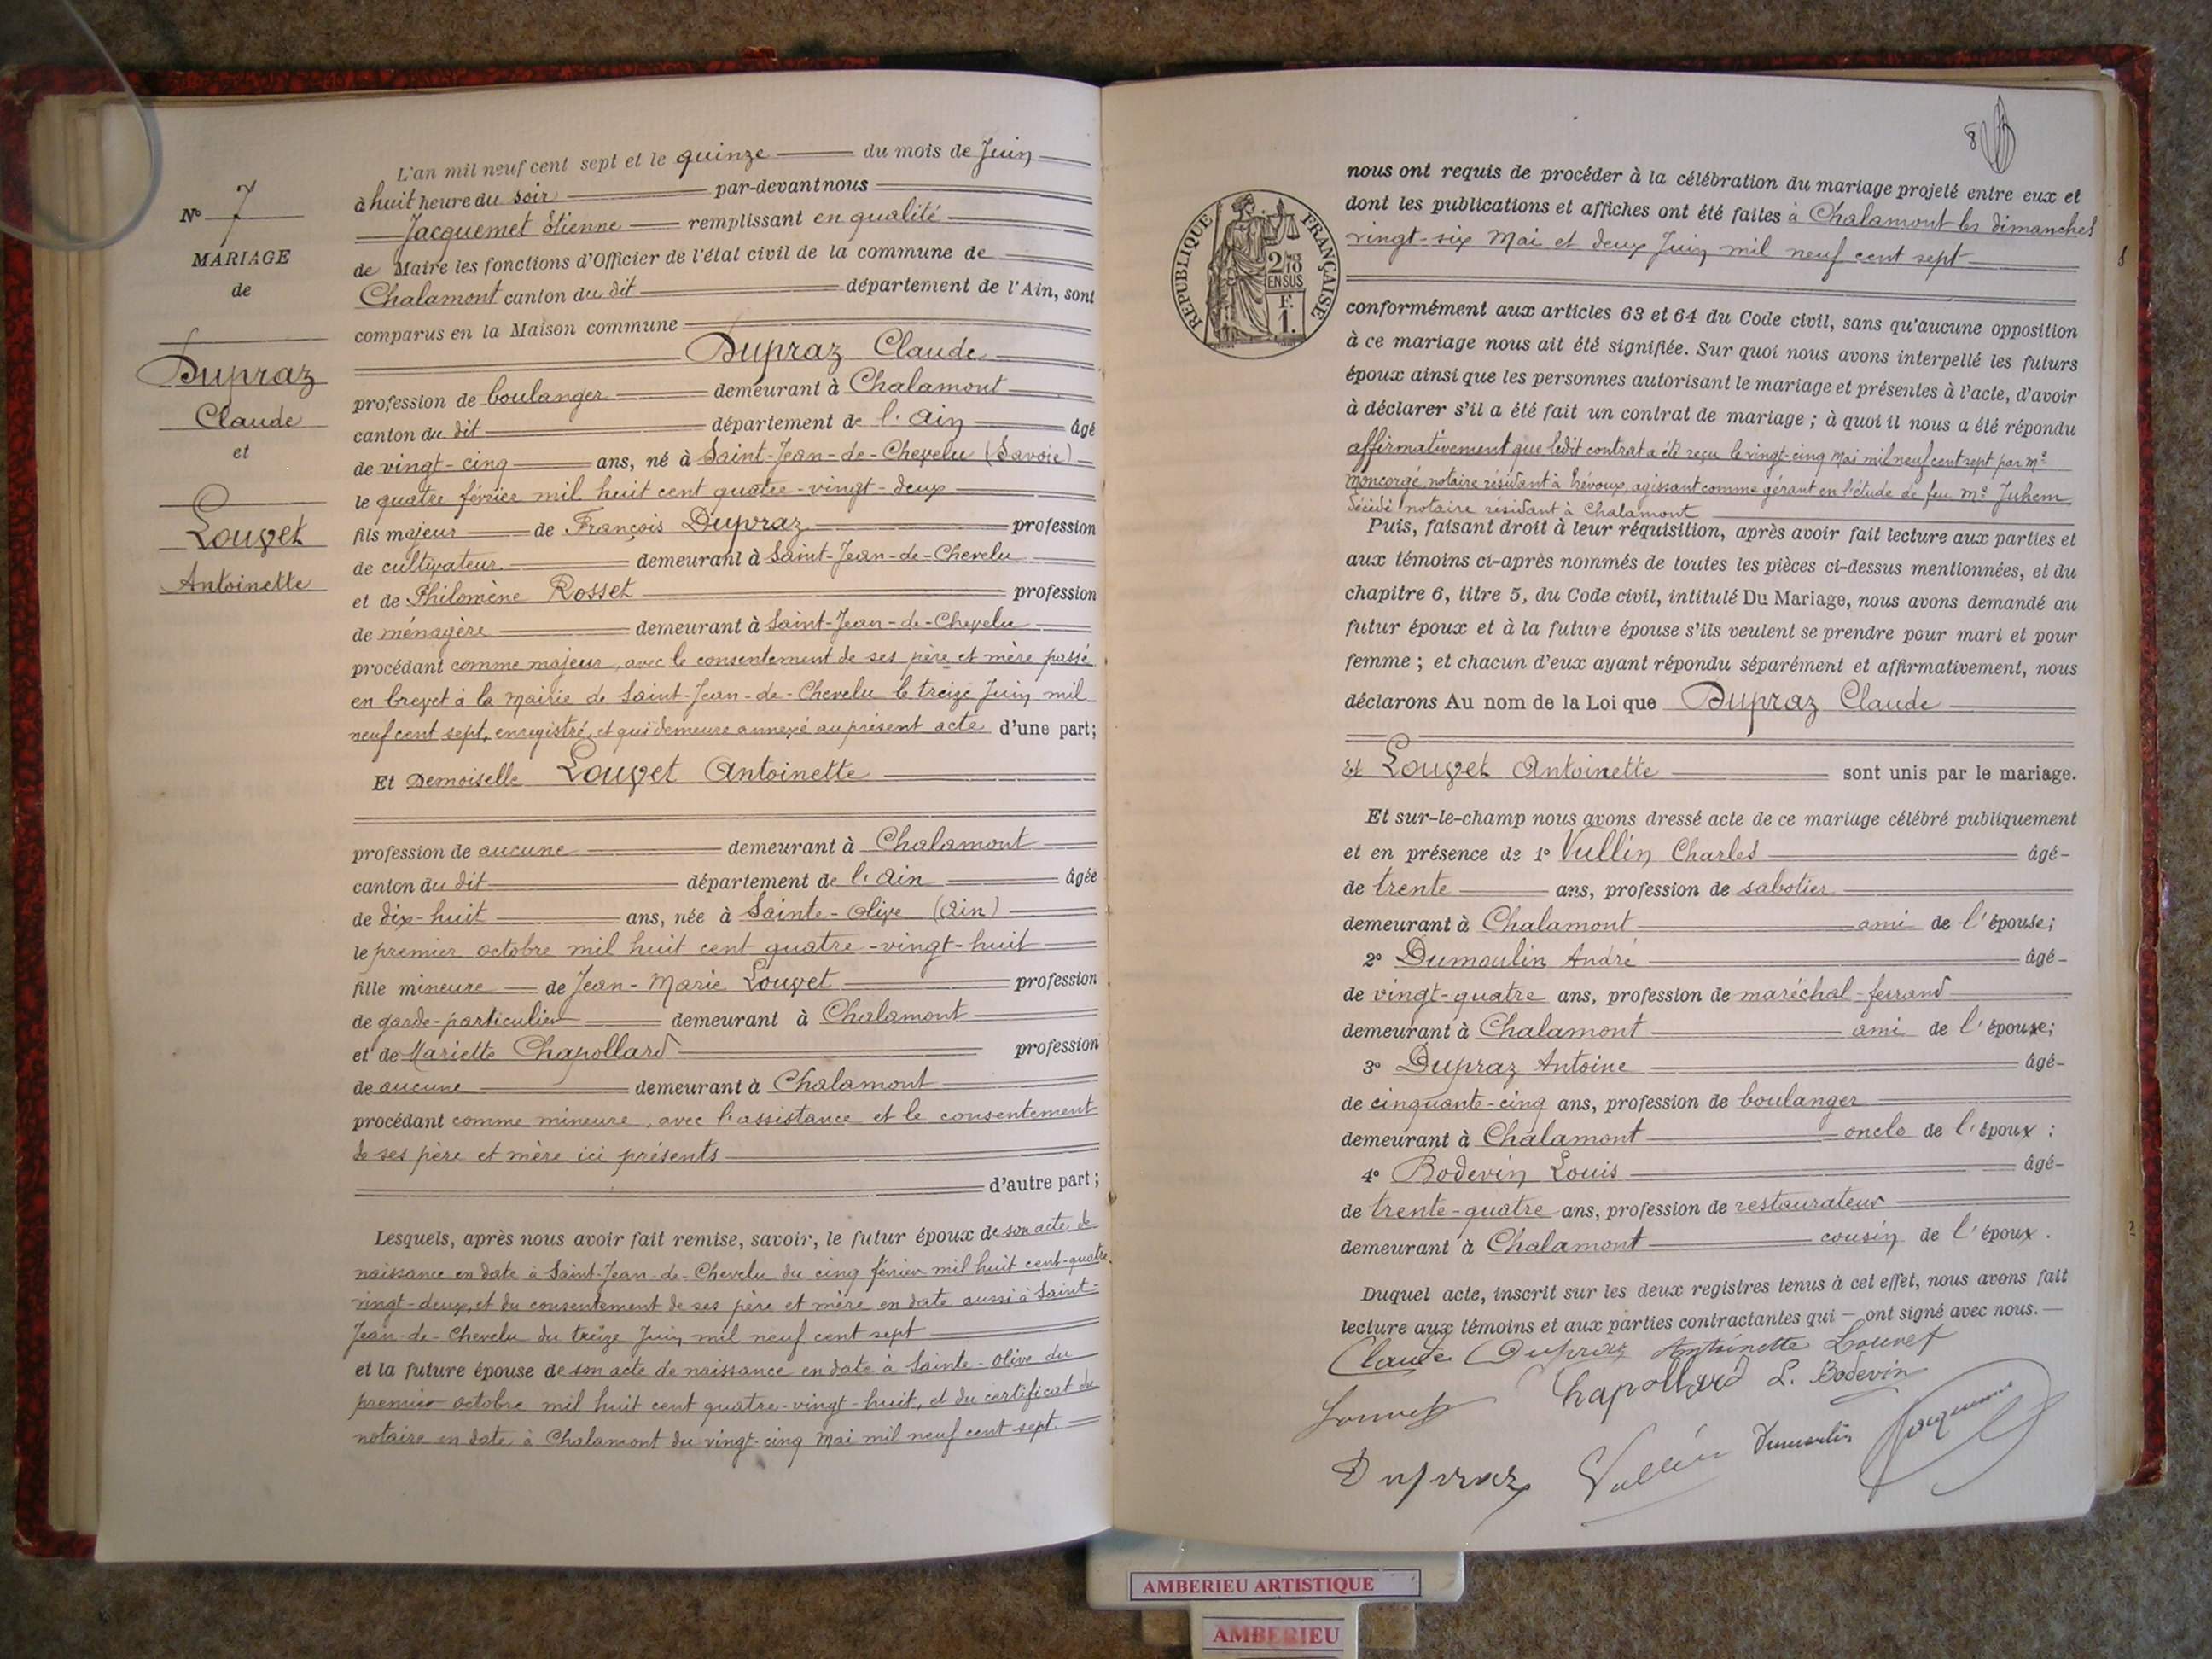 N° 7
MARIAGE
de
Dupraz
Claude
et
Louvet
Antoinette
L'an mil neuf cent sept et le quinze du mois de Juin
à huit heure du soir par-devant nous
Jacquemet Etienne remplissant en qualité
de Maire les fonctions d'Officier de l'état civil de la commune de
Chalamont canton du dit département de l'Ain, sont
comparus en la Maison commune
Dupraz Claude
profession de boulanger demeurant à Chalamont
canton du dit département de l'Ain âgé
de vingt-cinq ans, né à Saint-Jean-de-Chevelu (Savoie)
le quatre février mil huit cent quatre-vingt-deux
fils majeur de François Dupraz profession
de cultivateur demeurant à Saint-Jean-de-Chevelu
et de Philomène Rosset profession
de ménagère demeurant à Saint-Jean-de-Chevelu
procédant comme majeur, avec le consentement de ses père et mère passé
en brevet à la mairie de Saint-Jean-de-Chevelu le treize Juin mil
neuf cent sept, enregistré, et qui demeure annexé au présent acte d'une part;
Et Demoiselle Louvet Antoinette
profession de aucune demeurant à Chalamont
canton du dit département de l'Ain âgée
de dix-huit ans, née à Sainte-Olive (Ain)
le premier octobre mil huit cent quatre-vingt-huit
fille mineure de Jean-Marie Louvet profession
de garde-particulier demeurant à Chalamont
et de Mariette Chapollard profession
de aucune demeurant à Chalamont
procédant comme mineure, avec l'assistance et le consentement
de ses père et mère ici présents
d'autre part;
Lesquels, après nous avoir fait remise, savoir, le futur époux de son acte de
naissance en date à Saint-Jean-de-Chevelu du cinq février mil huit cent-quatre
vingt-deux, et du consentement de ses père et mère en date aussi à Saint-
Jean-de-Chevelu du treize Juin mil neuf cent sept
et la future épouse de son acte de naissance en date à Sainte-Olive du
premier octobre mil huit cent quatre-vingt-huit, et du certificat du
notaire en date à Chalamont du vingt-cinq Mai mil neuf cent sept.
8
RÉPUBLIQUE FRANÇAISE
2/10
EN SUS
F.
1.
nous ont requis de procéder à la célébration du mariage projeté entre eux et
dont les publications et affiches ont été faites à Chalamont les dimanches
vingt-six Mai et deux Juin mil neuf cent sept
conformément aux articles 63 et 64 du Code civil, sans qu'aucune opposition
à ce mariage nous ait été signifiée. Sur quoi nous avons interpellé les futurs
époux ainsi que les personnes autorisant le mariage et présentes à l'acte, d'avoir
à déclarer s'il a été fait un contrat de mariage; à quoi il nous a été répondu
affirmativement que ledit contrat a été reçu le vingt-cinq Mai mil neuf cent sept par Me
Moncorgé, notaire résidant à Trévoux, agissant comme gérant en l'étude de feu Me Juhem
décédé notaire résidant à Chalamont
Puis, faisant droit à leur réquisition, après avoir fait lecture aux parties et
aux témoins ci-après nommés de toutes les pièces ci-dessus mentionnées, et du
chapitre 6, titre 5, du Code civil, intitulé Du Mariage, nous avons demandé au
futur époux et à la future épouse s'ils veulent se prendre pour mari et pour
femme; et chacun d'eux ayant répondu séparément et affirmativement, nous
déclarons Au nom de la Loi que Dupraz Claude
Et Louvet Antoinette sont unis par le mariage.
Et sur-le-champ nous avons dressé acte de ce mariage célébré publiquement
et en présence de 1° Vullin Charles âgé-
de trente ans, profession de sabotier
demeurant à Chalamont ami de l'épouse;
2° Dumoulin André âgé-
de vingt-quatre ans, profession de maréchal-ferrand
demeurant à Chalamont ami de l'épouse;
3° Dupraz Antoine âgé-
de cinquante-cinq ans, profession de boulanger
demeurant à Chalamont oncle de l'époux;
4° Bodevin Louis âgé-
de trente-quatre ans, profession de restaurateur
demeurant à Chalamont cousin de l'époux.
Duquel acte, inscrit sur les deux registres tenus à cet effet, nous avons fait
lecture aux témoins et aux parties contractantes qui — ont signé avec nous. —
Claude Dupraz Antoinette Louvet
Louvet Chapollard L. Bodevin
Dupraz Vullin Dumoulin Jacquemet
AMBERIEU ARTISTIQUE
AMBERIEU